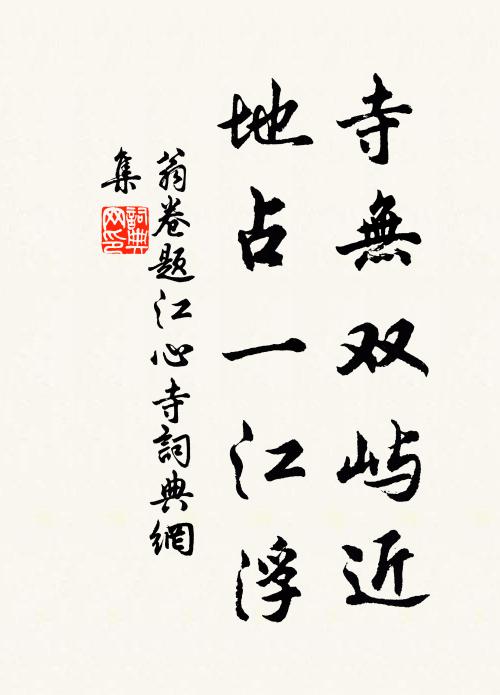 寺無双屿近
地占一江浮
翁卷题江心寺詞典網
集
詞典网印